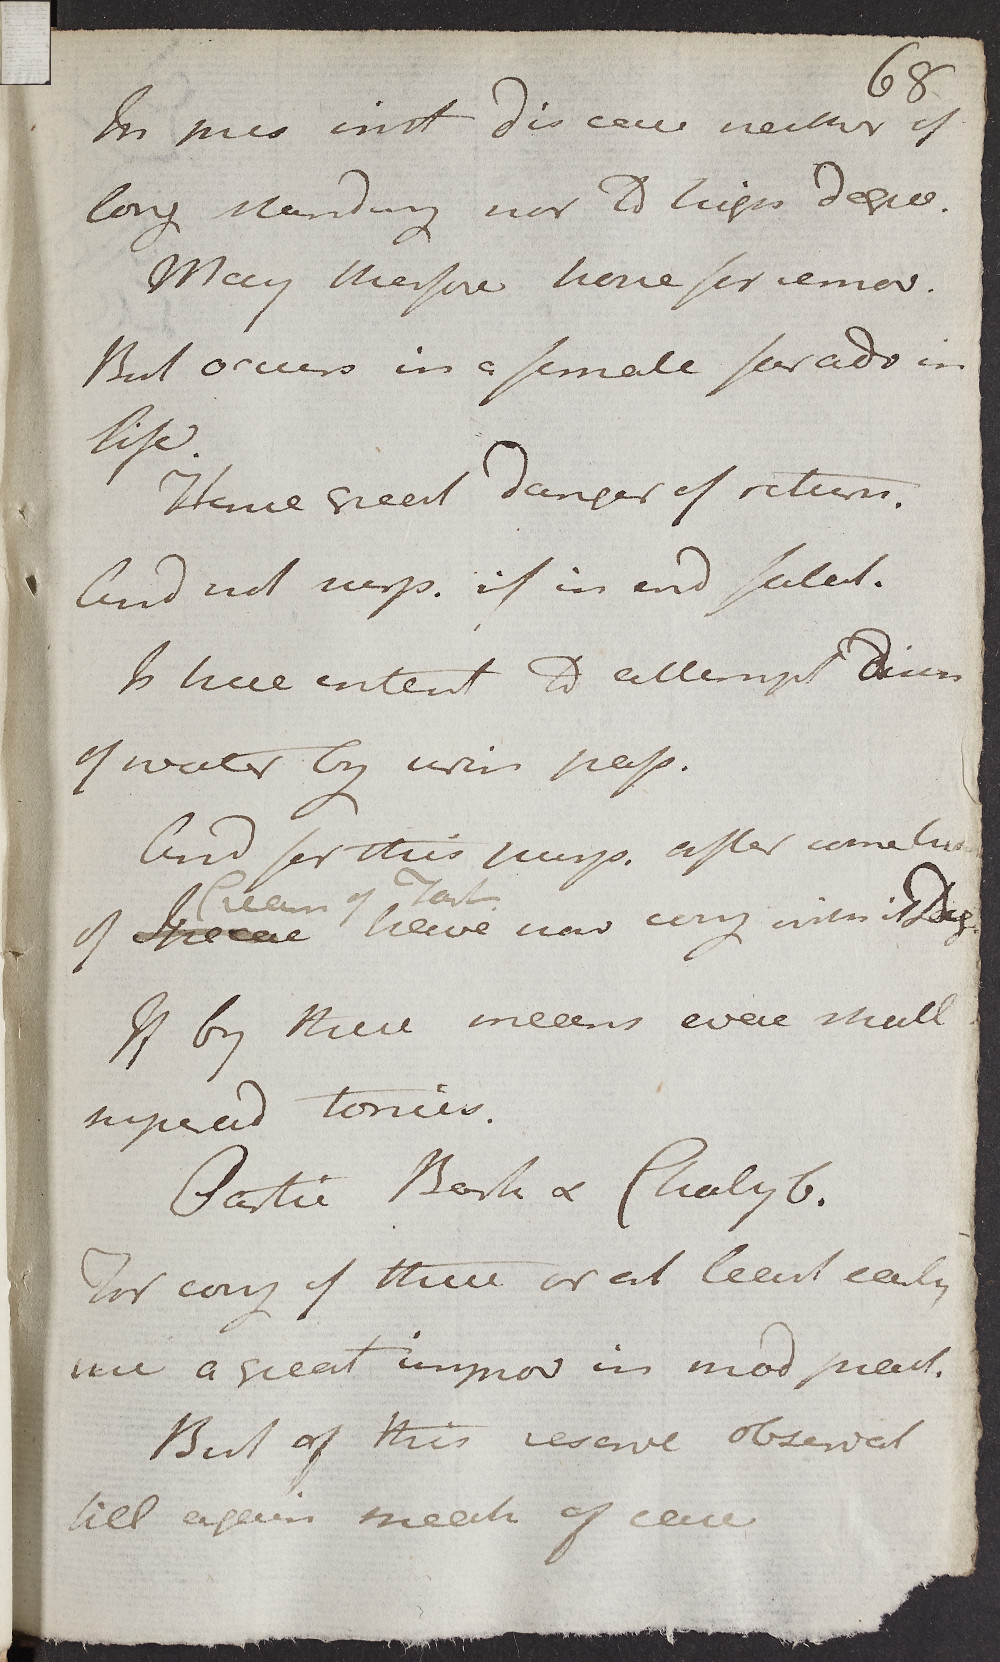 68
In pres inst disease neither of
long standing nor to high degree.
May therefore hope for remov.
But occurs in a female far adv in
life.
Hence great danger of return.
And not surp. if in end fatal.
Is here intent to attempt
of water by urin pass.
And for this purp. after some
of Cream of Tart. have now conj with it Dig.
If by these means evac shall
superad tonics.
Partic Bark & Chalyb.
For conj of these or at least early
use a great improv in mod pract.
But of this reserve observat
till again speak of case